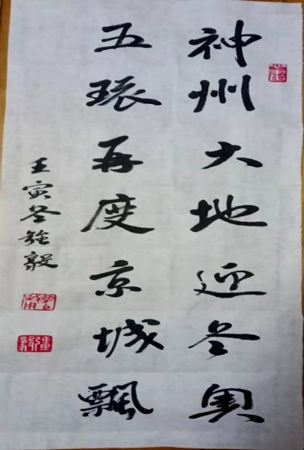 神州大地迎冬奥
五环再度京城飘
壬寅冬
毅